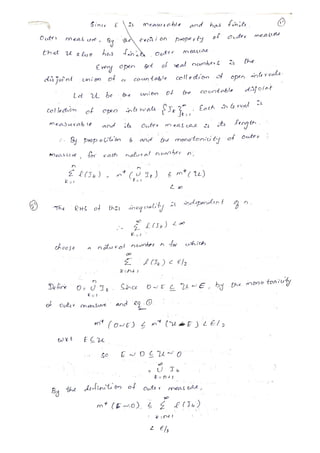 Since E is measurable and has finite
outer measure, By the excision property of outer measure
that U also has finite outer measure
Every open set of real numbers is the
disjoint union of a countable collection of open intervals.
Let U be the union of the countable disjoint
collection of open intervals {I_k}_{k=1}^∞. Each interval is
measurable and its outer measure is its length.
∴ By proposition 6 and the monotonicity of outer
measure, for each natural number n,
n
Σ ℓ(I_k) = m* (∪ I_k) ≤ m* (U)
k=1
< ∞
The RHS of this inequality is independent of n.
∴ Σ_{k=1}^∞ ℓ(I_k) < ∞
choose a natural number n for which
∞
Σ ℓ(I_k) < ε/2
k=n+1
Define O = ∪_{k=1}^n I_k. Since O ~ E ⊆ U ~ E, by the monotonicity
of outer measure and eq ①.
m* (O ~ E) ≤ m* (U ~ E) < ε/2
E ⊆ U
so E ~ O ⊆ U ~ O
∞
= ∪ I_k
k=n+1
By the definition of outer measure,
m* (E ~ O) ≤ Σ_{k=n+1}^∞ ℓ(I_k)
< ε/2